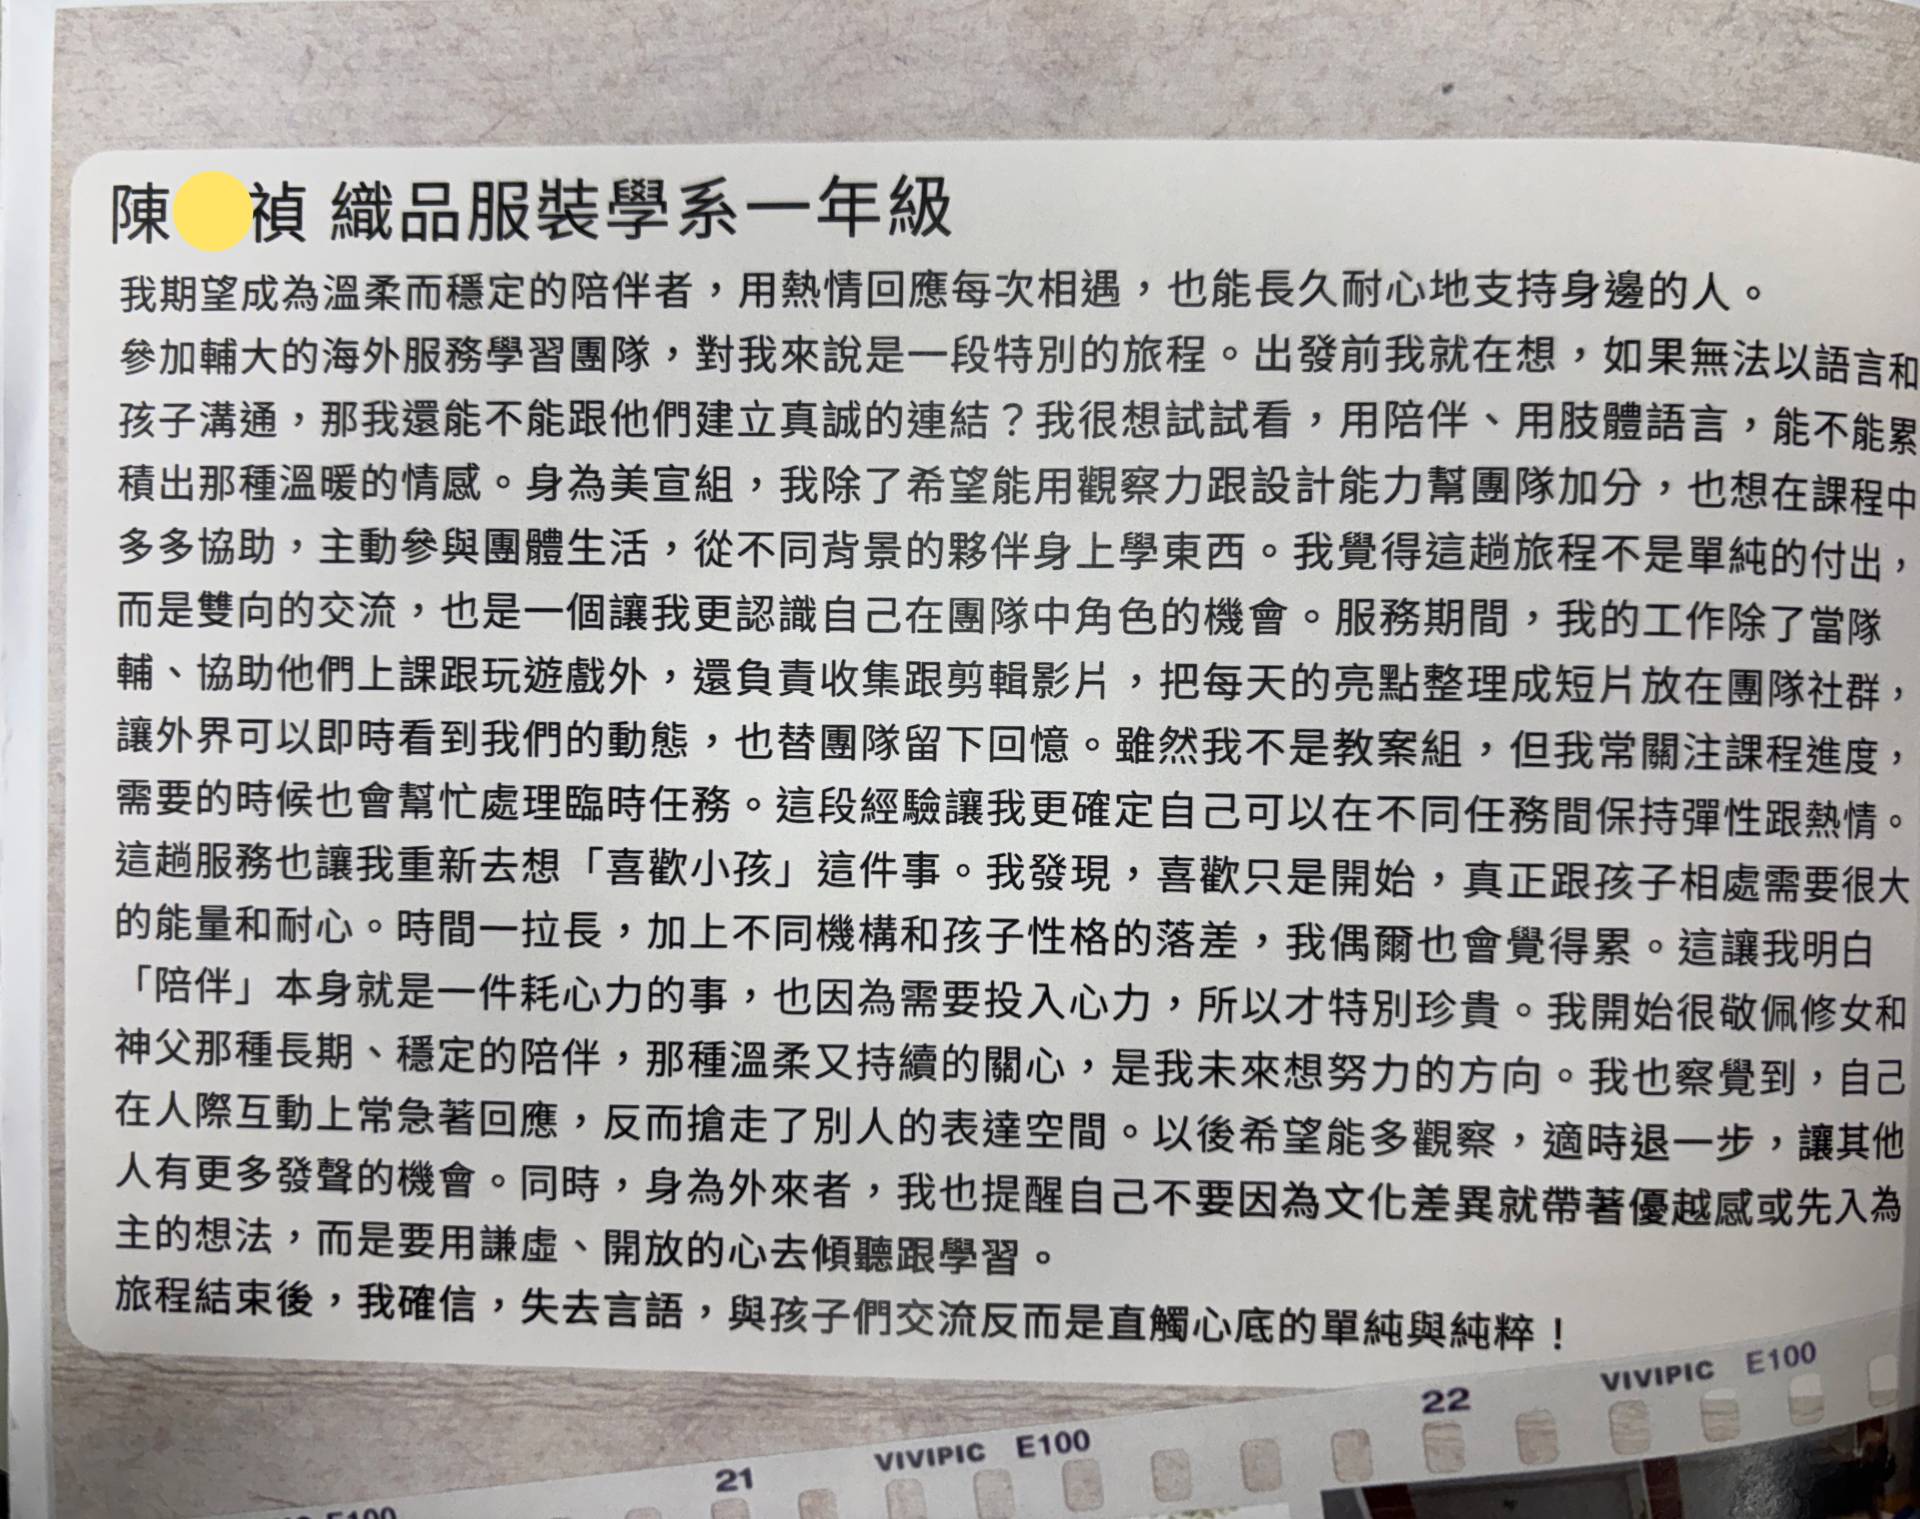 陳 禎 織品服裝學系一年級
我期望成為溫柔而穩定的陪伴者，用熱情回應每次相遇，也能長久耐心地支持身邊的人。
參加輔大的海外服務學習團隊，對我來說是一段特別的旅程。出發前我就在想，如果無法以語言和
孩子溝通，那我還能不能跟他們建立真誠的連結？我很想試試看，用陪伴、用肢體語言，能不能累
積出那種溫暖的情感。身為美宣組，我除了希望能用觀察力跟設計能力幫團隊加分，也想在課程中
多多協助，主動參與團體生活，從不同背景的夥伴身上學東西。我覺得這趟旅程不是單純的付出，
而是雙向的交流，也是一個讓我更認識自己在團隊中角色的機會。服務期間，我的工作除了當隊
輔、協助他們上課跟玩遊戲外，還負責收集跟剪輯影片，把每天的亮點整理成短片放在團隊社群，
讓外界可以即時看到我們的動態，也替團隊留下回憶。雖然我不是教案組，但我常關注課程進度，
需要的時候也會幫忙處理臨時任務。這段經驗讓我更確定自己可以在不同任務間保持彈性跟熱情。
這趟服務也讓我重新去想「喜歡小孩」這件事。我發現，喜歡只是開始，真正跟孩子相處需要很大
的能量和耐心。時間一拉長，加上不同機構和孩子性格的落差，我偶爾也會覺得累。這讓我明白
「陪伴」本身就是一件耗心力的事，也因為需要投入心力，所以才特別珍貴。我開始很敬佩修女和
神父那種長期、穩定的陪伴，那種溫柔又持續的關心，是我未來想努力的方向。我也察覺到，自己
在人際互動上常急著回應，反而搶走了別人的表達空間。以後希望能多觀察，適時退一步，讓其他
人有更多發聲的機會。同時，身為外來者，我也提醒自己不要因為文化差異就帶著優越感或先入為
主的想法，而是要用謙虛、開放的心去傾聽跟學習。
旅程結束後，我確信，失去言語，與孩子們交流反而是直觸心底的單純與純粹！
22 VIVIPIC E100
21 VIVIPIC E100
E100